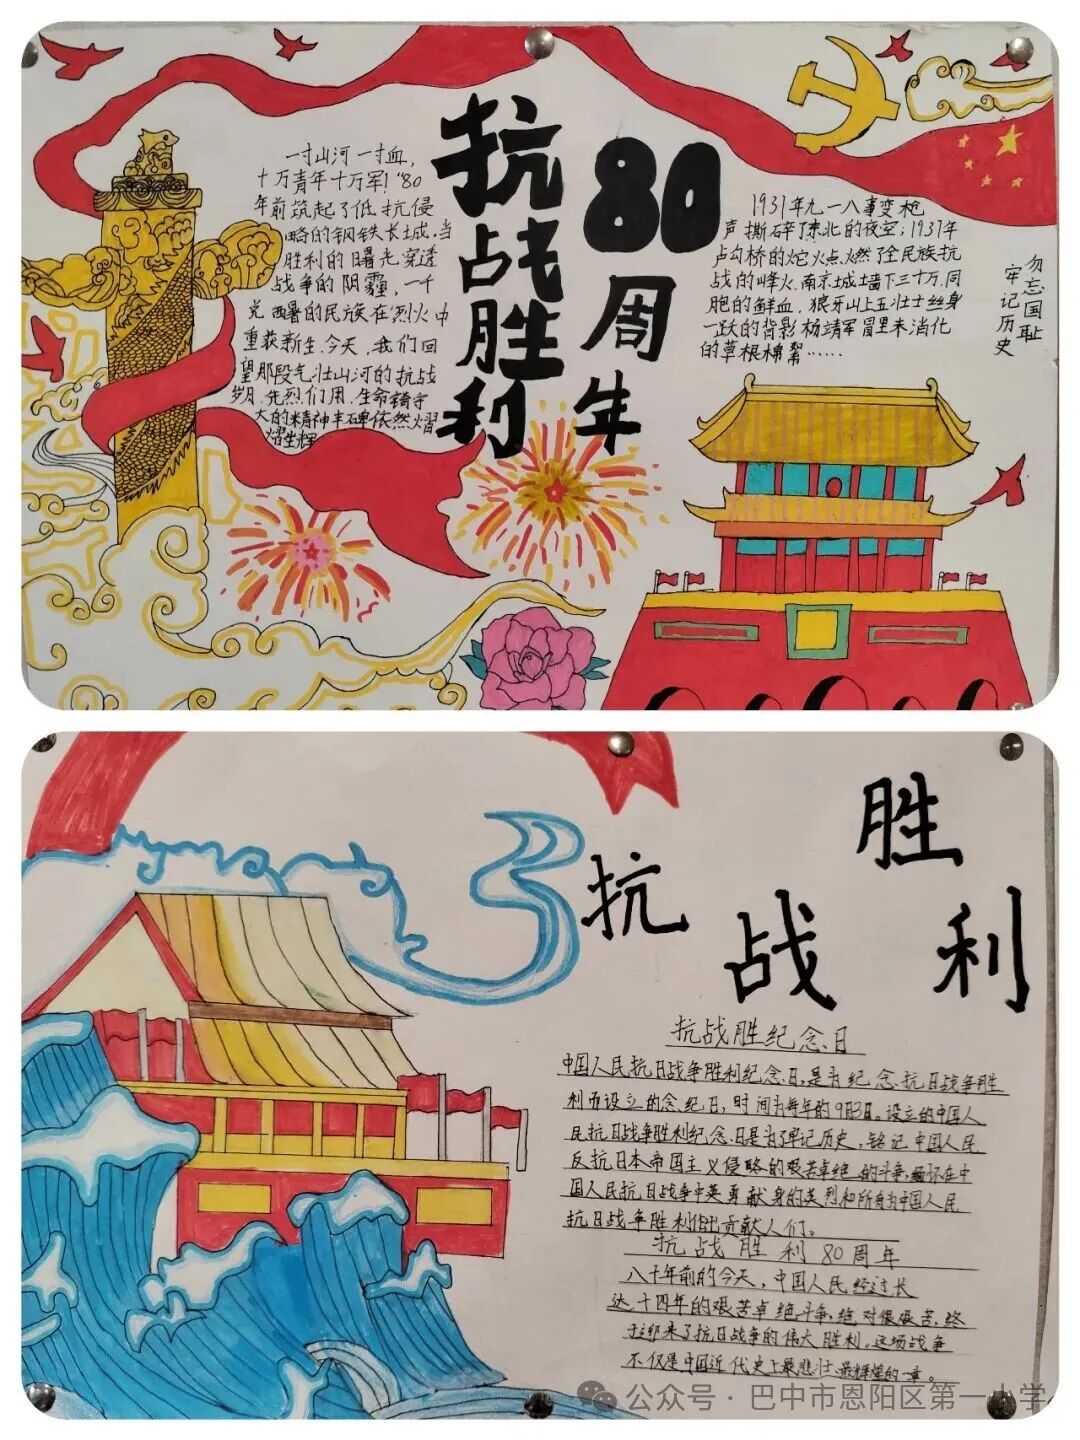 抗战胜利
80周年
一寸山河一寸血,
十万青年十万军!"80
年前筑起了抵抗侵
略的钢铁长城,当
胜利的曙光穿透
战争的阴霾,一个
重获新生.今天,我们回
望那段气壮山河的抗战
岁月.先烈们用生命铸守
大的精神丰碑依然熠
熠生辉
1931年九一八事变枪
声撕碎了东北的夜空;1937年
卢沟桥的炮火点燃了全民族抗
战的烽火.南京城墙下三十万同
胞的鲜血,狼牙山上五壮士纵身
一跃的背影杨靖宇胃里未消化
的草根棉絮……
勿忘国耻
牢记历史
抗战胜利
抗战胜纪念日
中国人民抗日战争胜利纪念日,是为纪念抗日战争胜
利而设立的念纪日,时间为每年的9月3日。设立的中国人
民抗日战争胜利纪念日是为了牢记历史,铭记中国人民
反抗日本帝国主义侵略的艰苦卓绝的斗争,缅怀在中
国人民抗日战争中英勇献身的英烈和所有为中国人民
抗日战争胜利作出贡献人们。
抗战胜利80周年
八十年前的今天,中国人民经过长
达十四年的艰苦卓绝斗争,绝对很艰苦,终
于迎来了抗日战争的伟大胜利。这场战争
不仅是中国近代史上最悲壮最辉煌的一章。
公众号·巴中市恩阳区第一小学